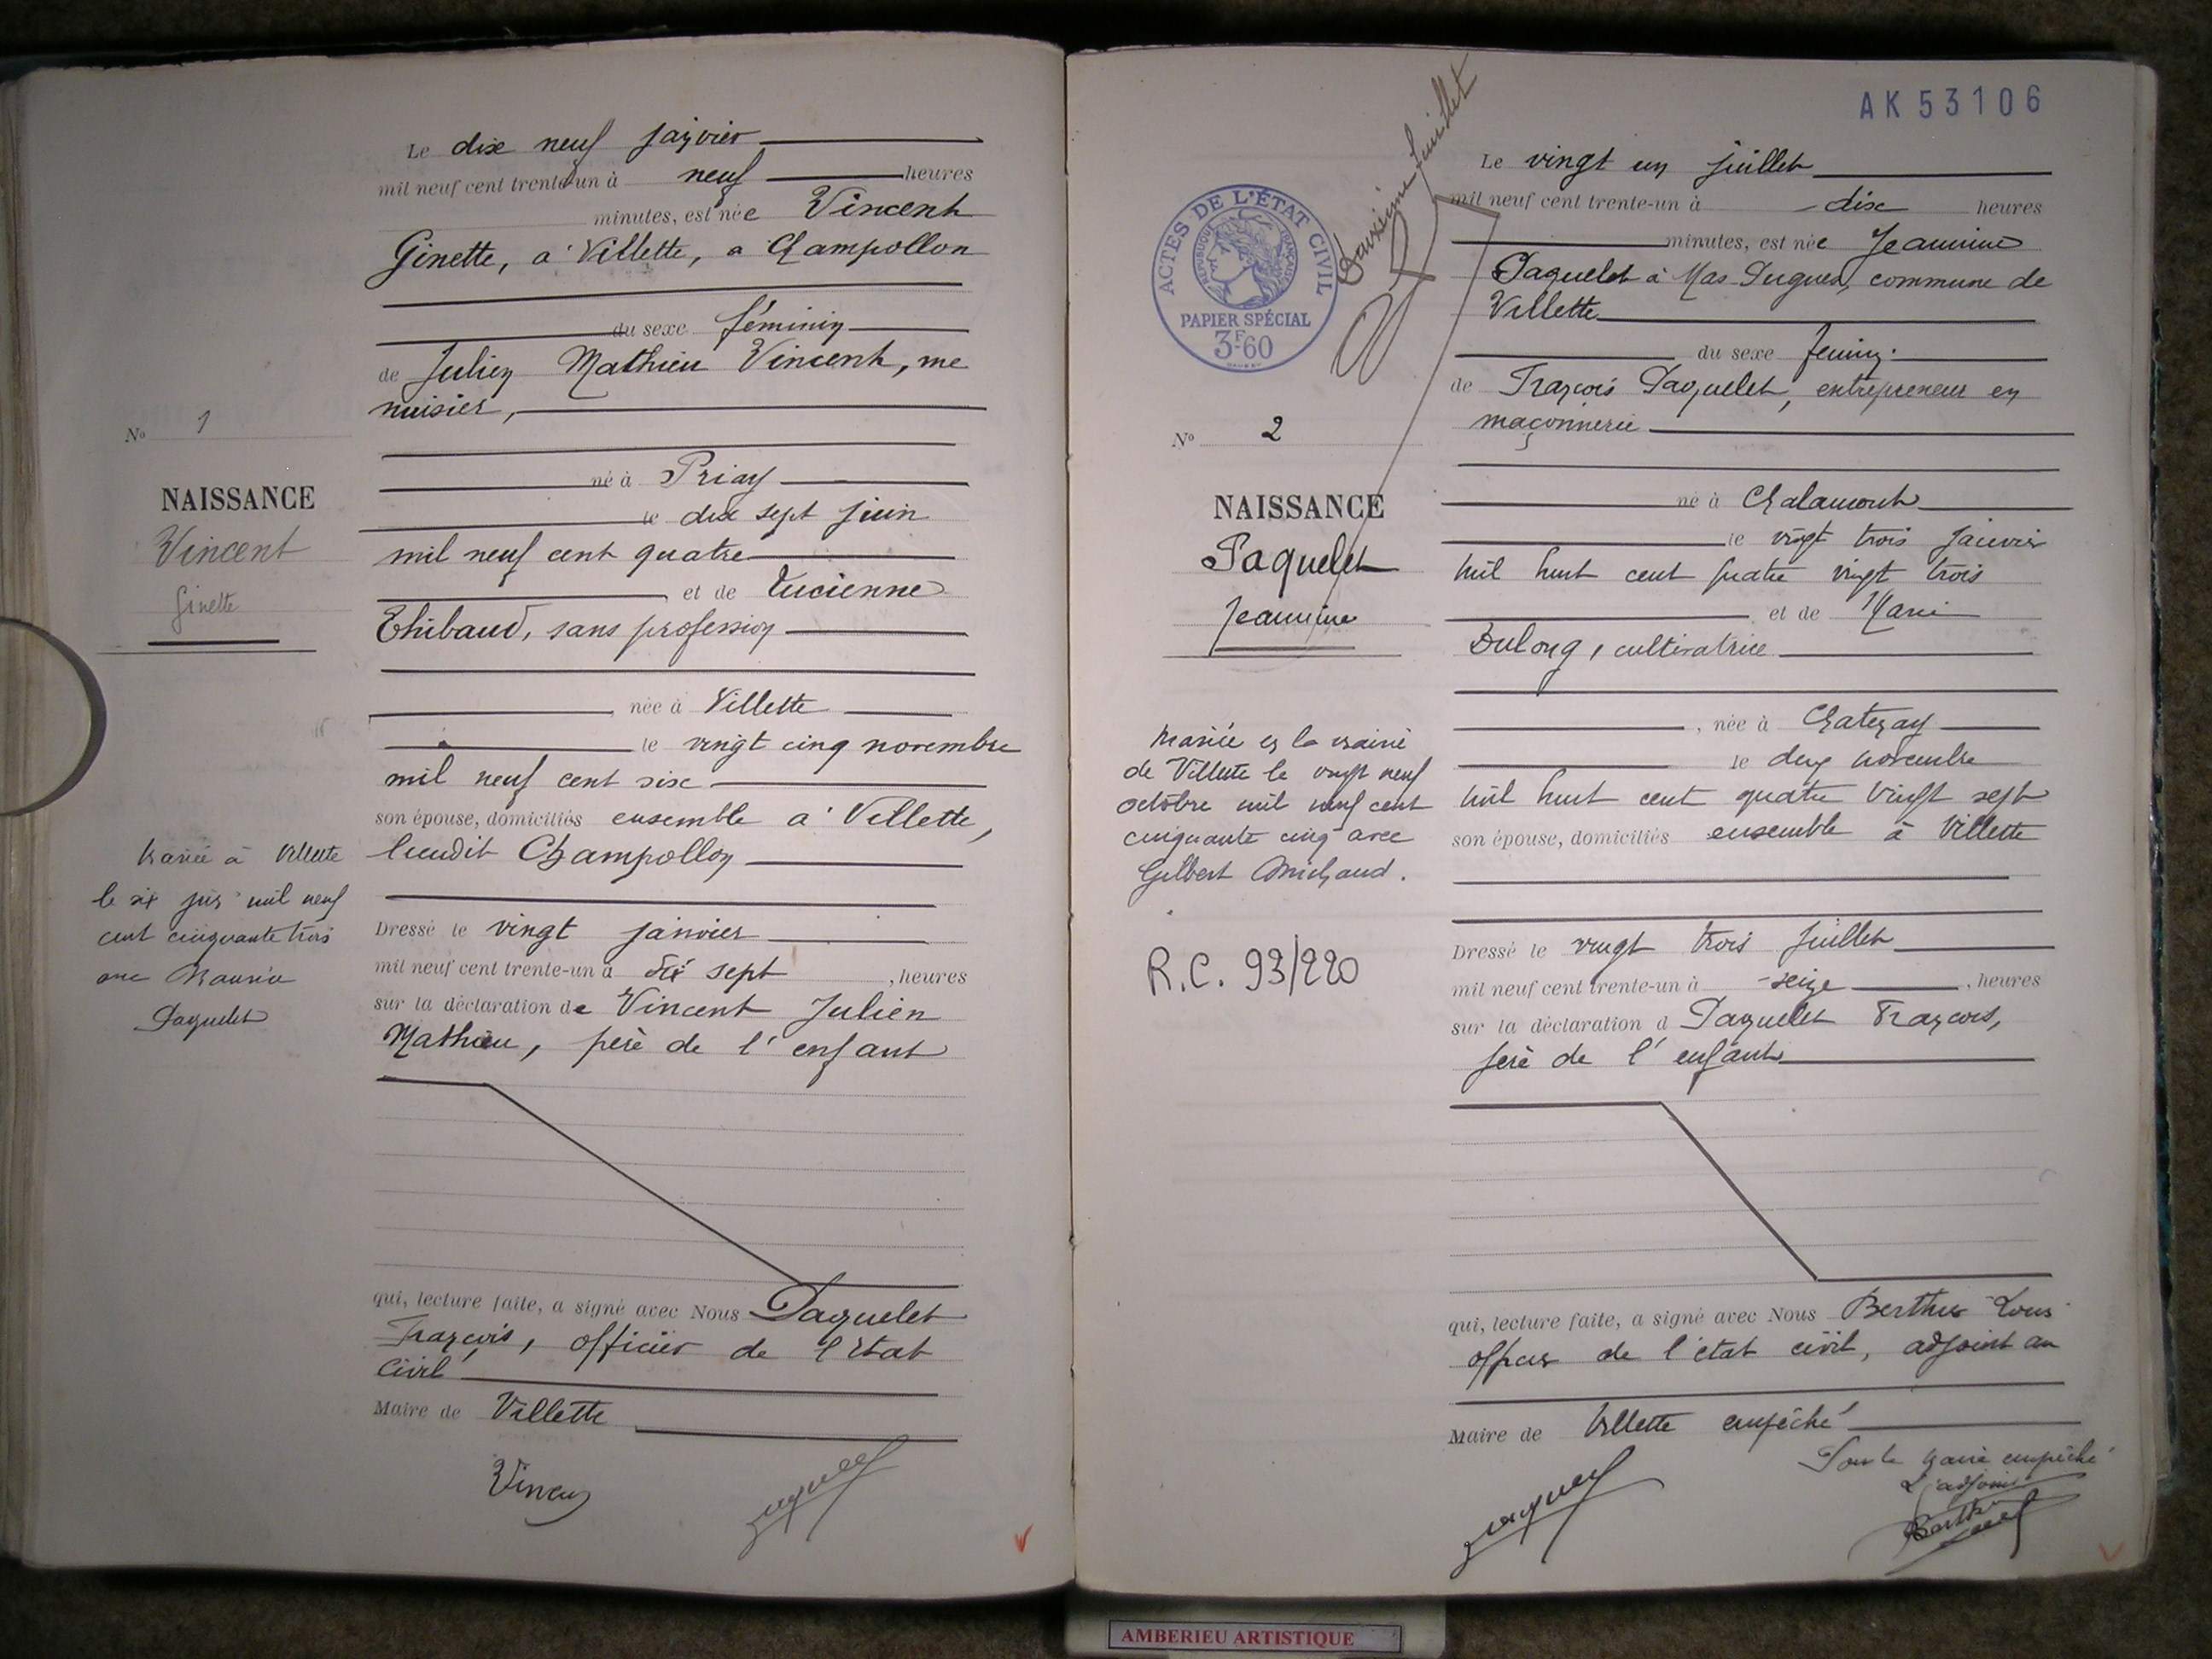 Le dix neuf janvier
mil neuf cent trente-un à neuf heures
minutes, est née Vincent
Ginette, à Villette, a Champollon
du sexe féminin
de Julien Mathieu Vincent, me
nuisier,
né à Priay
le dix sept juin
mil neuf cent quatre
et de Lucienne
Thibaud, sans profession
née à Villette
le vingt cinq novembre
mil neuf cent six
son épouse, domiciliés ensemble à Villette,
lieudit Champollon
Dressé le vingt janvier
mil neuf cent trente-un à dix sept, heures
sur la déclaration de Vincent Julien
Mathieu, père de l'enfant
qui, lecture faite, a signé avec Nous Paquelet
François, officier de l'Etat
Civil
Maire de Villette
No 1
NAISSANCE
Vincent
Ginette
Mariée à Villette
le six juin mil neuf
cent cinquante trois
avec Maurice
Paquelet
AK53106
Le vingt un juillet
mil neuf cent trente-un à dix heures
minutes, est née Jeannine
Paquelet à Mas Dugues, commune de
Villette
du sexe femin.
de François Paquelet, entrepreneur en
maçonnerie
né à Chalamont
le vingt trois janvier
mil huit cent quatre vingt trois
et de Marie
Dulong, cultivatrice
, née à Chatenay
le deux novembre
mil huit cent quatre vingt sept
son épouse, domiciliés ensemble à Villette
Dressé le vingt trois juillet
mil neuf cent trente-un à seize, heures
sur la déclaration d Paquelet François,
père de l'enfant
qui, lecture faite, a signé avec Nous Berthier Louis
officier de l'état civil, adjoint au
Maire de Villette empêché
Pour le Maire empêché
L'adjoint
ACTES DE L'ÉTAT CIVIL
RÉPUBLIQUE FRANÇAISE
PAPIER SPÉCIAL
3F60
Deuxième feuillet
No 2
NAISSANCE
Paquelet
Jeannine
Mariée en la mairie
de Villette le vingt neuf
octobre mil neuf cent
cinquante cinq avec
Gilbert Michaud.
R.C. 93/220
AMBERIEU ARTISTIQUE